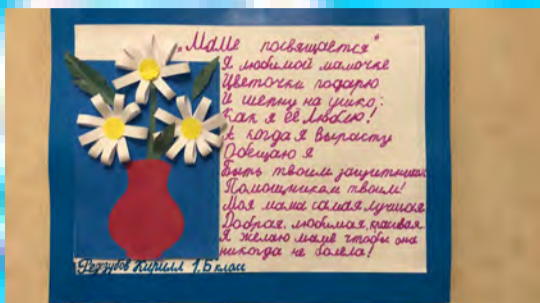 „Маме посвящается"
Я любимой мамочке
Цветочки подарю
И шепну на ушко:
Как я её люблю!
А когда я вырасту
Обещаю я
Быть твоим защитником
Помощником твоим!
Моя мама самая лучшая
Добрая, любимая, красивая
Я желаю маме чтобы она
никогда не болела!
Кирилл 1,Б класс